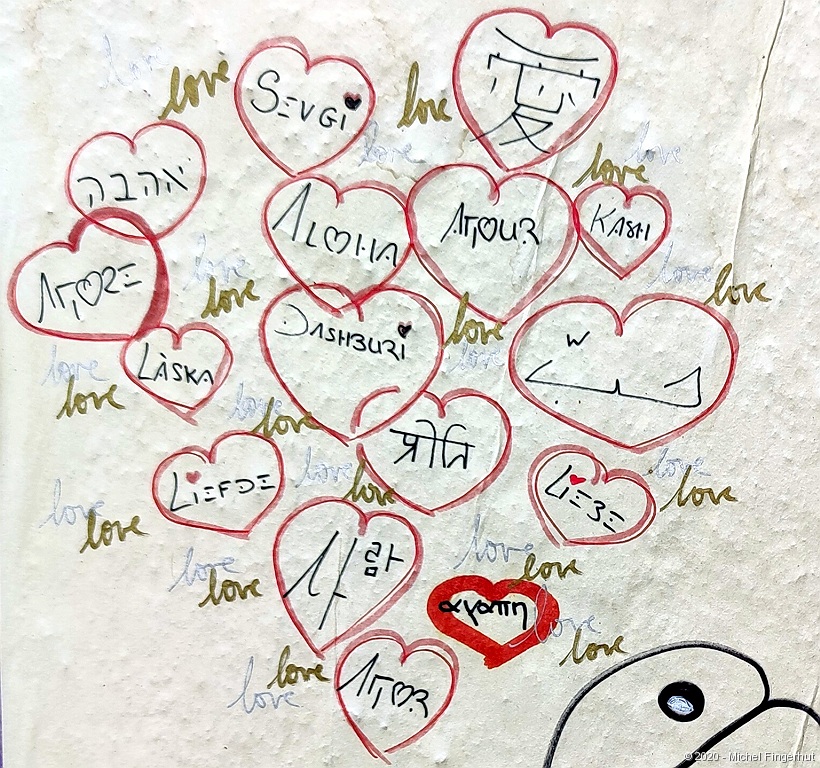 love
SEVGI
love
愛
love
love
love
love
אהבה
ALOHA
AMOUR
KASH
love
love
AMORE
love
love
DASHBURI
love
love
LÀSKA
love
love
love
love
प्रीति
LIEFDE
love
love
LIEBE
love
love
love
love
사람
love
love
love
love
αγαπη
love
love
love
love
AMOR
© 2020 - Michel Fingerhut